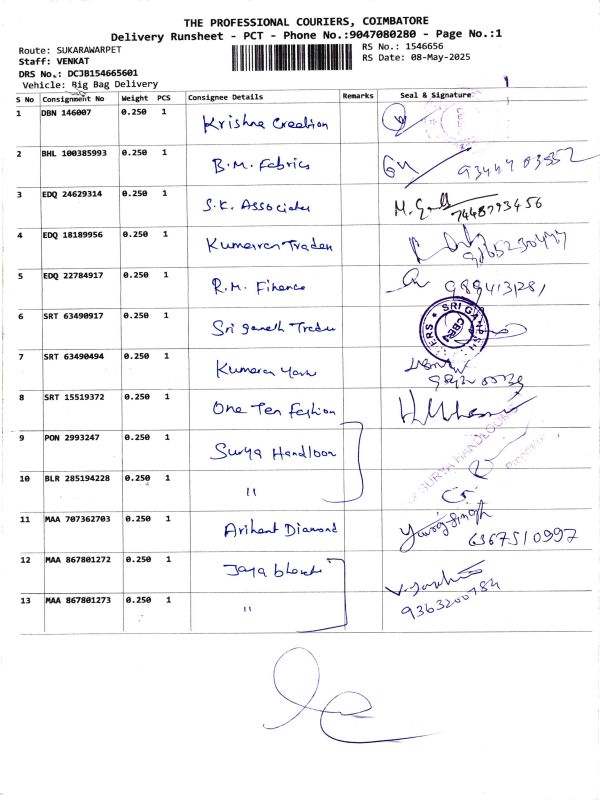 THE PROFESSIONAL COURIERS, COIMBATORE
Delivery Runsheet - PCT - Phone No.:9047080280 - Page No.:1
Route: SUKARAWARPET
RS No.: 1546656
Staff: VENKAT
RS Date: 08-May-2025
DRS No.: DCJB154665601
Vehicle: Big Bag Delivery
S No Consignment No Weight PCS Consignee Details Remarks Seal & Signature
1 DBN 146007 0.250 1 Krishna Creation
2 BHL 100385993 0.250 1 B.M. Fabrics
3 EDQ 24629314 0.250 1 S.K. Associates 7448793456
4 EDQ 18189956 0.250 1 Kumaran Traders
5 EDQ 22784917 0.250 1 R.M. Finance
6 SRT 63490917 0.250 1 Sri ganesh Trader SRI GANESH
7 SRT 63490494 0.250 1 Kumaran Yarn
8 SRT 15519372 0.250 1 One Ten Fashion
9 PON 2993247 0.250 1 Surya Handloom SURYA HANDLOOMS
Proprietor
10 BLR 285194228 0.250 1 "
11 MAA 707362703 0.250 1 Arihant Diamond 6367510997
12 MAA 867801272 0.250 1 Jaya
13 MAA 867801273 0.250 1 " 9363200784